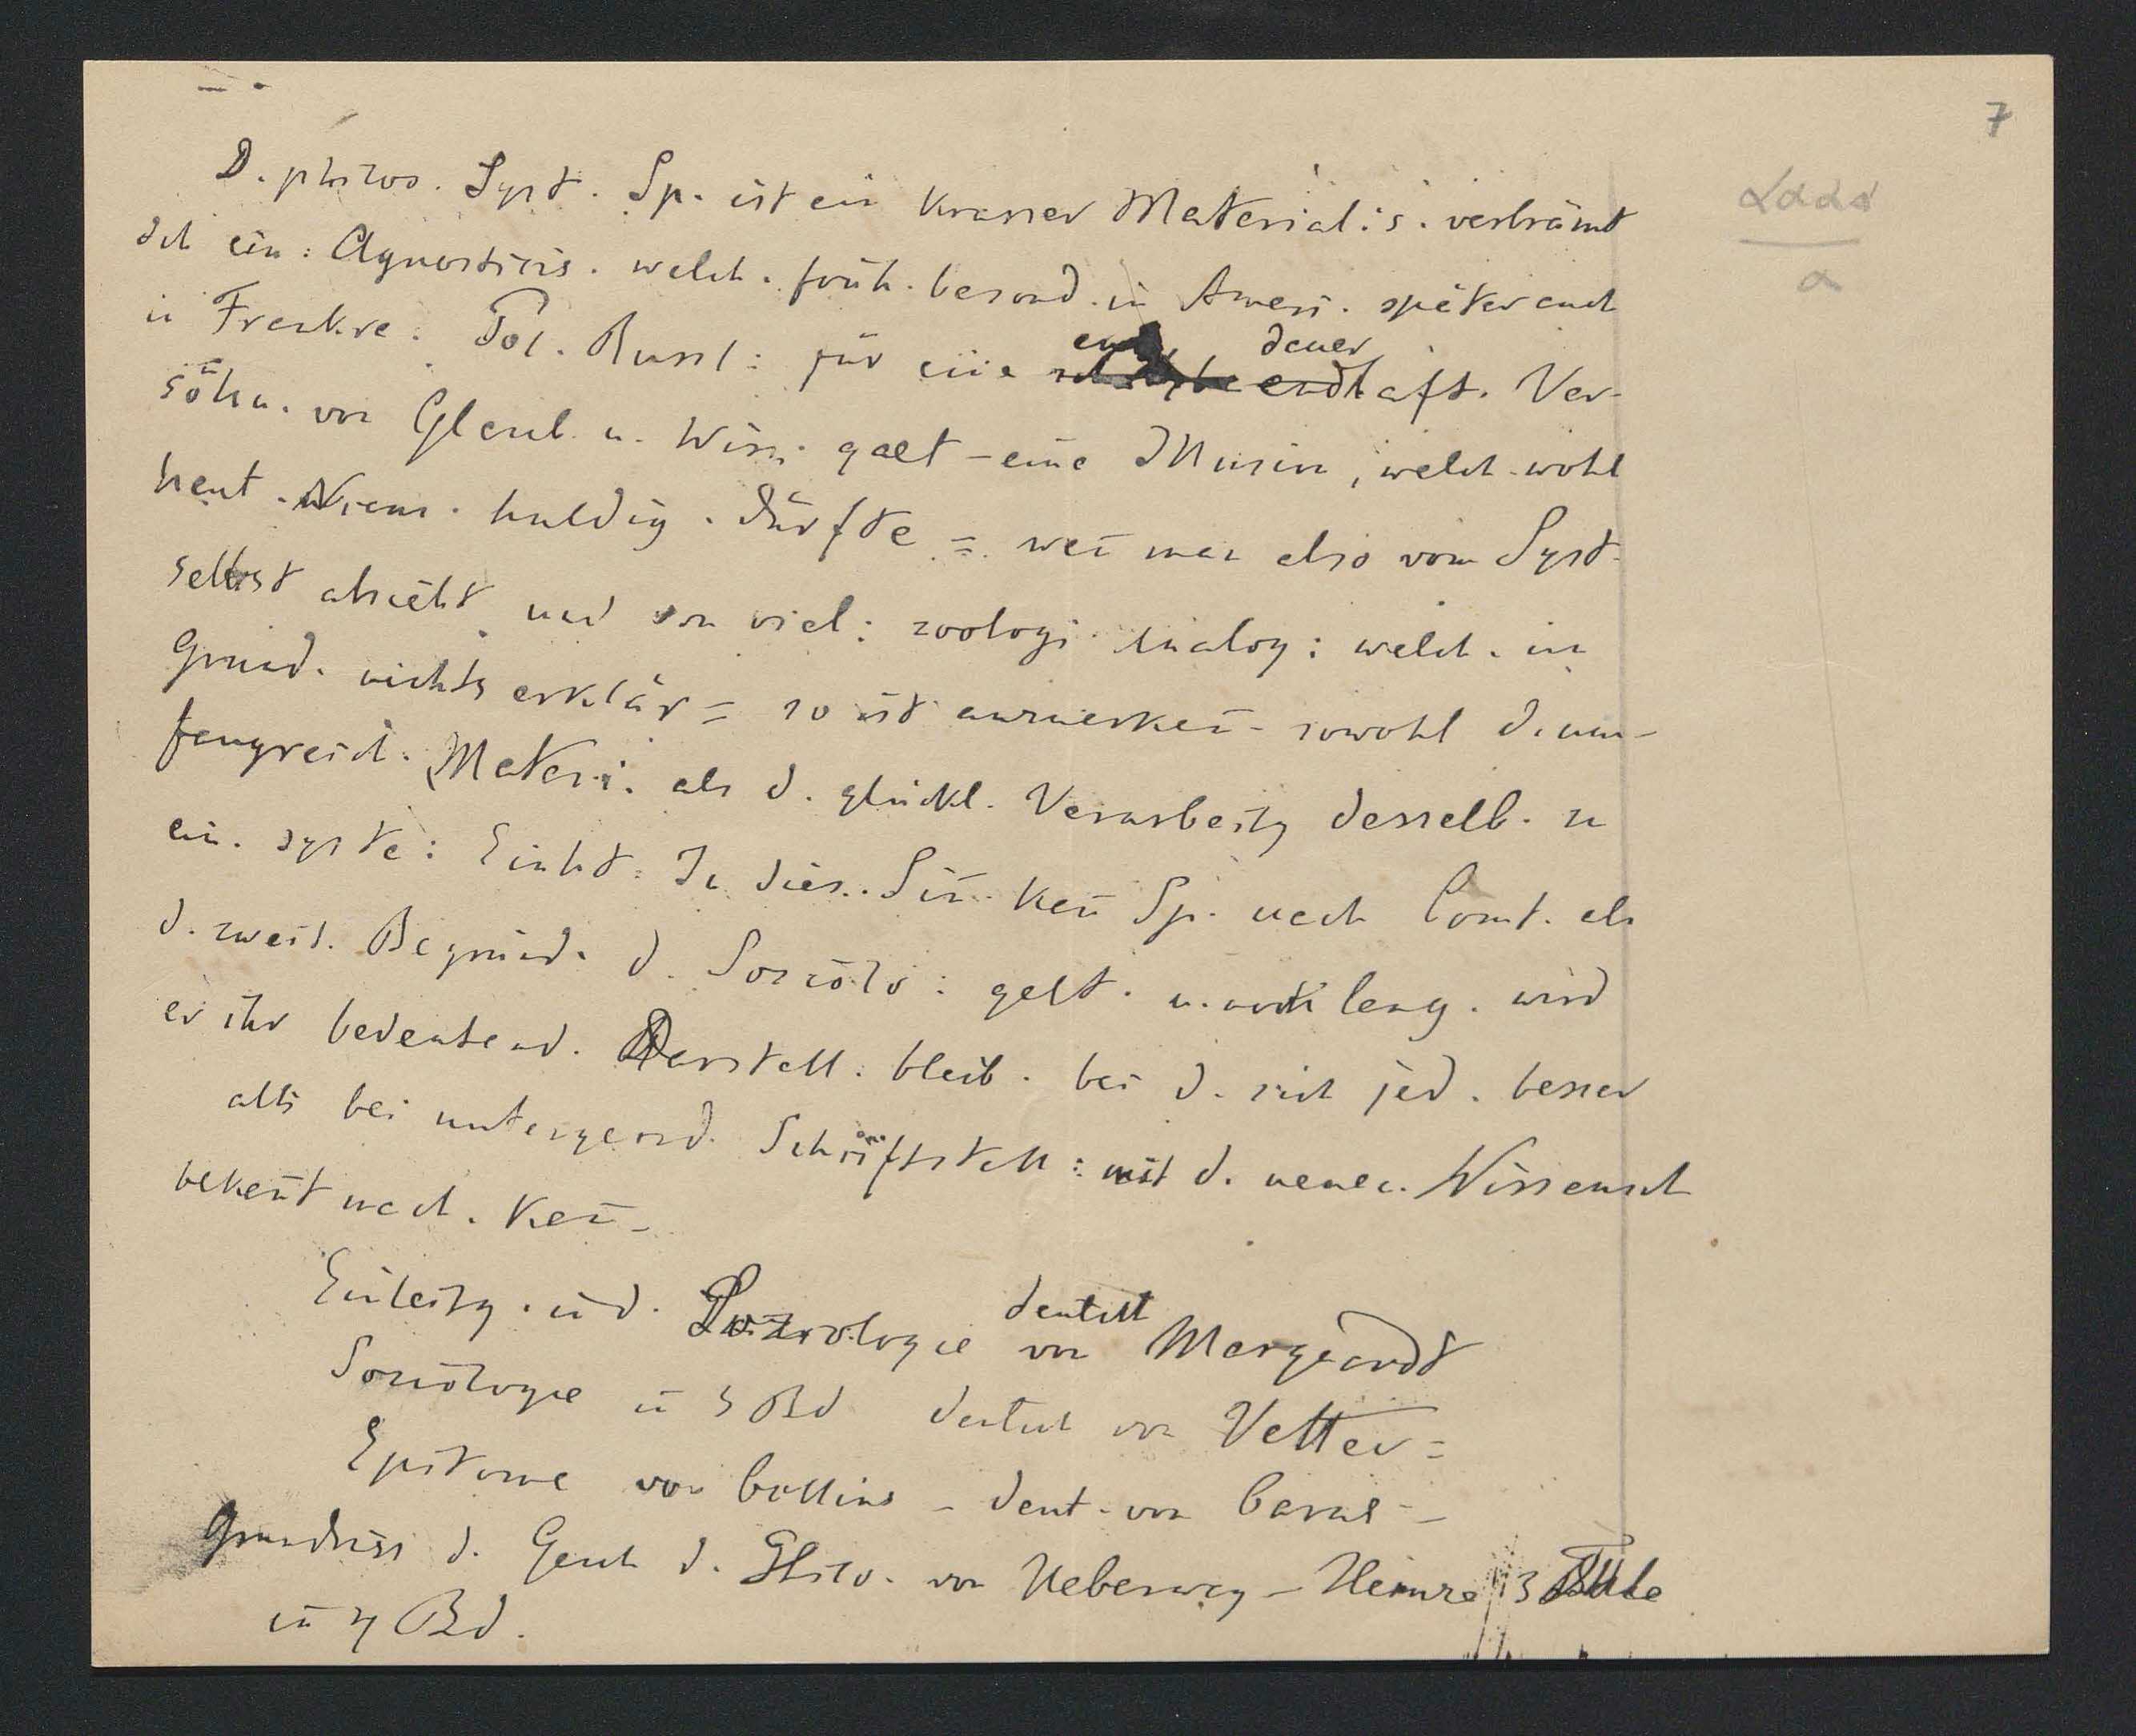 7
D. philos. Syst. Sp. ist ein krasser Material:s. verbrämt
dch ein: Agnosticis. welch. früh. besond. in Ameri. später auch
in Frankre. Pol. Russl: für eine dauerhaft. Ver-
söhn. von Glaub. u. Wiss. galt – eine Illusion, welch. wohl
heut. Niem. huldig. dürfte = wen̄ man also vom Syst.
selbst absieht und von viel: zoologi. Analog: welch. im
Grund. nichts erklär = so ist anzuerken̄ – sowohl d. um-
fangreich. Materi. als d. glückl. Verarbeitg desselb. zu
ein. syste: Einht. In dies. Sin̄. kan̄ Sp. nach Comt. als
d. zweit. Begründ. d. Soziolo: gelt. u. noch lang. wird
er ihr bedeutend. Darstell: bleib. bei d. sich jed. besser
als bei untergeord. Schriftstell: mit d. neuen. Wissensch
bekan̄t mach. kan̄ –
Einleitg. in d. Soziologie deutsch von Marquardt
Soziologie in Bd deutsch von Vetter =
Epitome von Collins – deut. von Carus –
Grundriss d. Gesch d. Philo. von Ueberweg – Heinze 3
in 4 Bd.